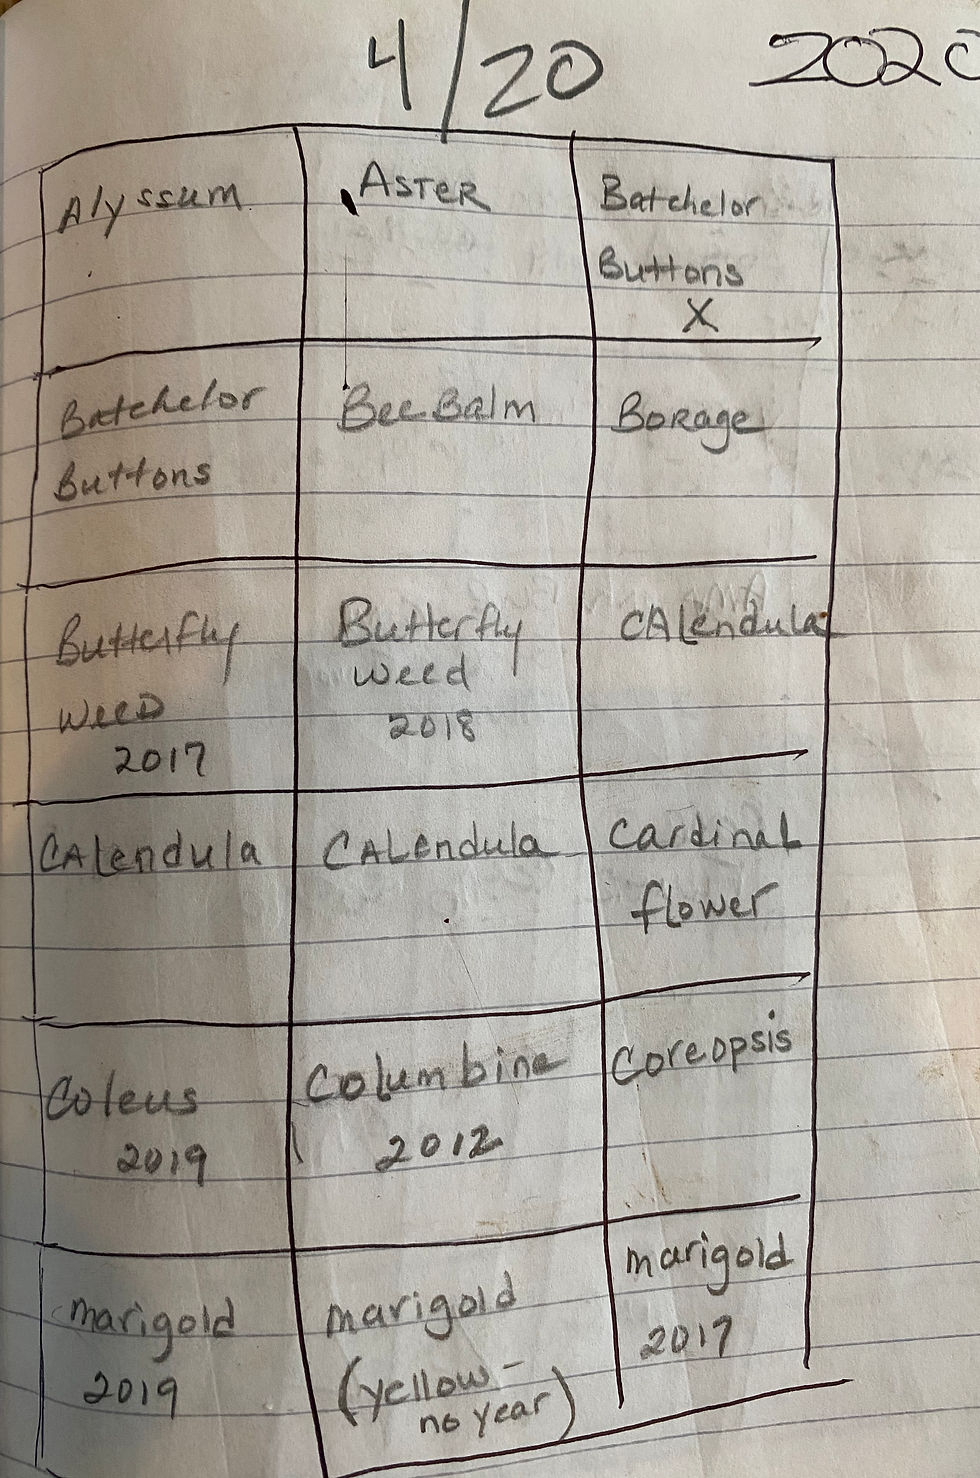 4/20 2020
Alyssum
ASTER
Batchelor
Buttons
X
Batchelor
Buttons
Bee Balm
Borage
Butterfly
weed
2017
Butterfly
weed
2018
CALendula
CALendula
CALendula
Cardinal
flower
Coleus
2019
Columbine
2012
Coreopsis
marigold
2019
marigold
(yellow-
no year)
marigold
2017